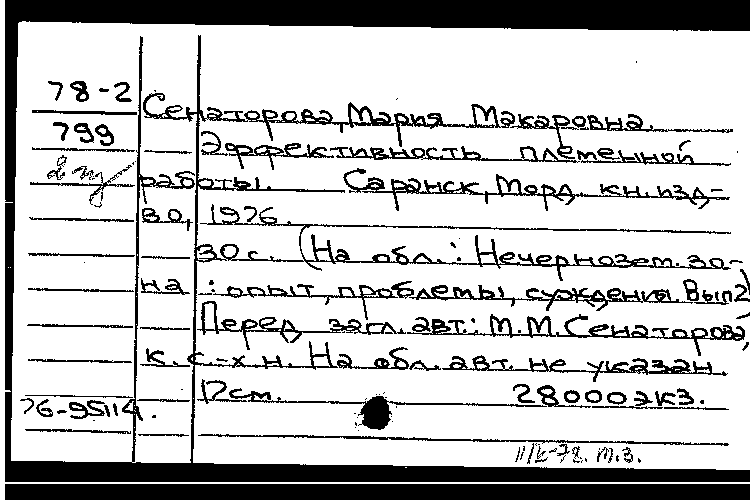 78-2
799
2 пу
Сенаторова, Мария Макаровна.
Эффективность племенной
работы. Саранск, Морд. кн. изд-
во, 1976.
30 с. (На обл.: Нечернозем. зо-
на: опыт, проблемы, суждения. Вып 2)
Перед загл. авт.: М.М. Сенаторова,
к. с.-х. н. На обл. авт. не указан.
17 см. 28000 экз.
76-95114.
II/к-78. т.з.